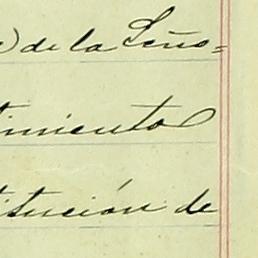 ) de la Seño-
timiento
titución de